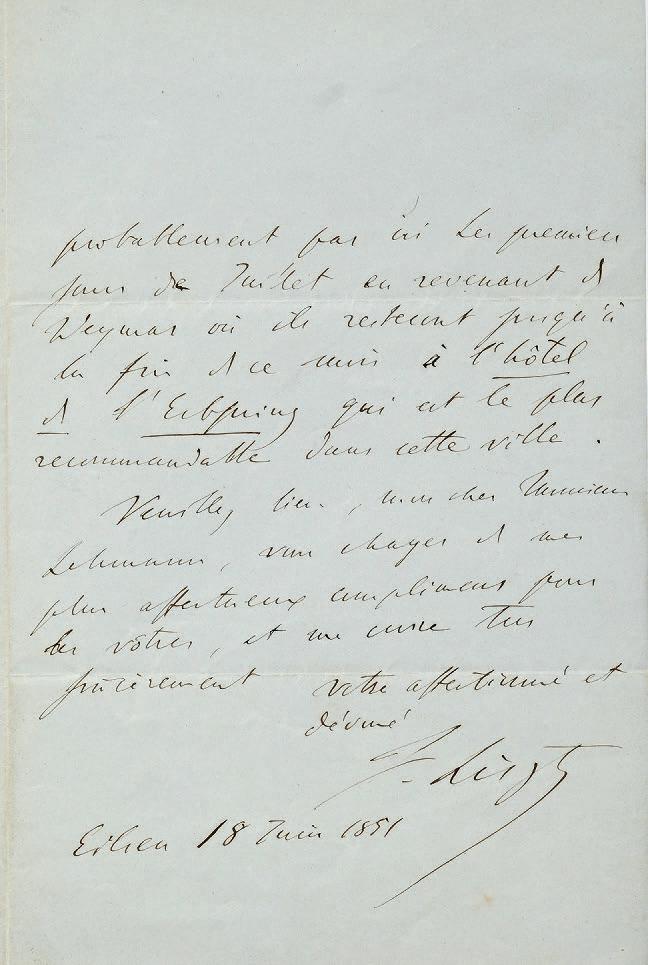 probablement par ici les premiers
jours de Juillet en revenant de
Weymar où ils resteront jusqu'à
la fin de ce mois à l'hôtel
de l'Erbprinz qui est le plus
recommandable dans cette ville.
Veuillez bien, mon cher Monsieur
Lehmann, vous charger de mes
plus affectueux compliments pour
les vôtres, et me croire très
sincèrement votre affectionné et
dévoué
F. Liszt
Eilsen 18 Juin 1851